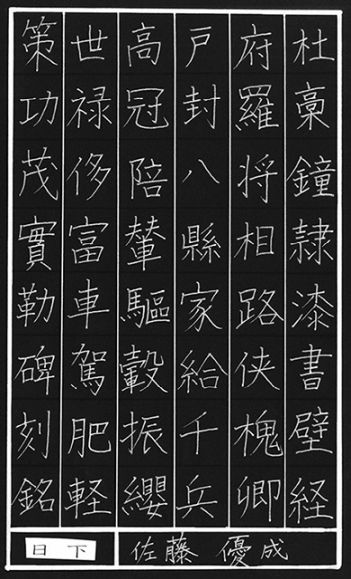 杜稾鐘隷漆書壁経
府羅将相路侠槐卿
戸封八縣家給千兵
高冠陪輦驅轂振纓
世禄侈富車駕肥軽
策功茂實勒碑刻銘
佐藤 優成
日下